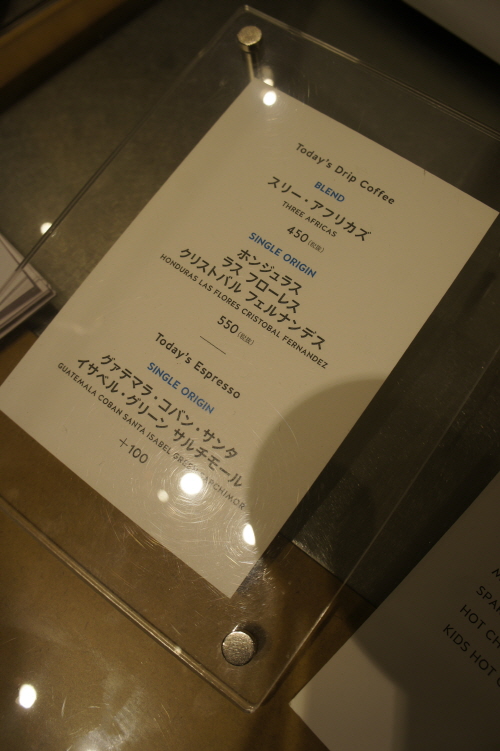 Today's Drip Coffee
BLEND
スリー・アフリカズ
THREE AFRICAS
450
SINGLE ORIGIN
ホンジュラス
ラス フローレス
クリストバル フェルナンデス
HONDURAS LAS FLORES CRISTOBAL FERNANDEZ
550
Today's Espresso
SINGLE ORIGIN
グァテマラ・コバン・サンタ
イサベル・グリーン サルチモール
GUATEMALA COBAN SANTA ISABEL GREEN
+100
HOT
KIDS HOT